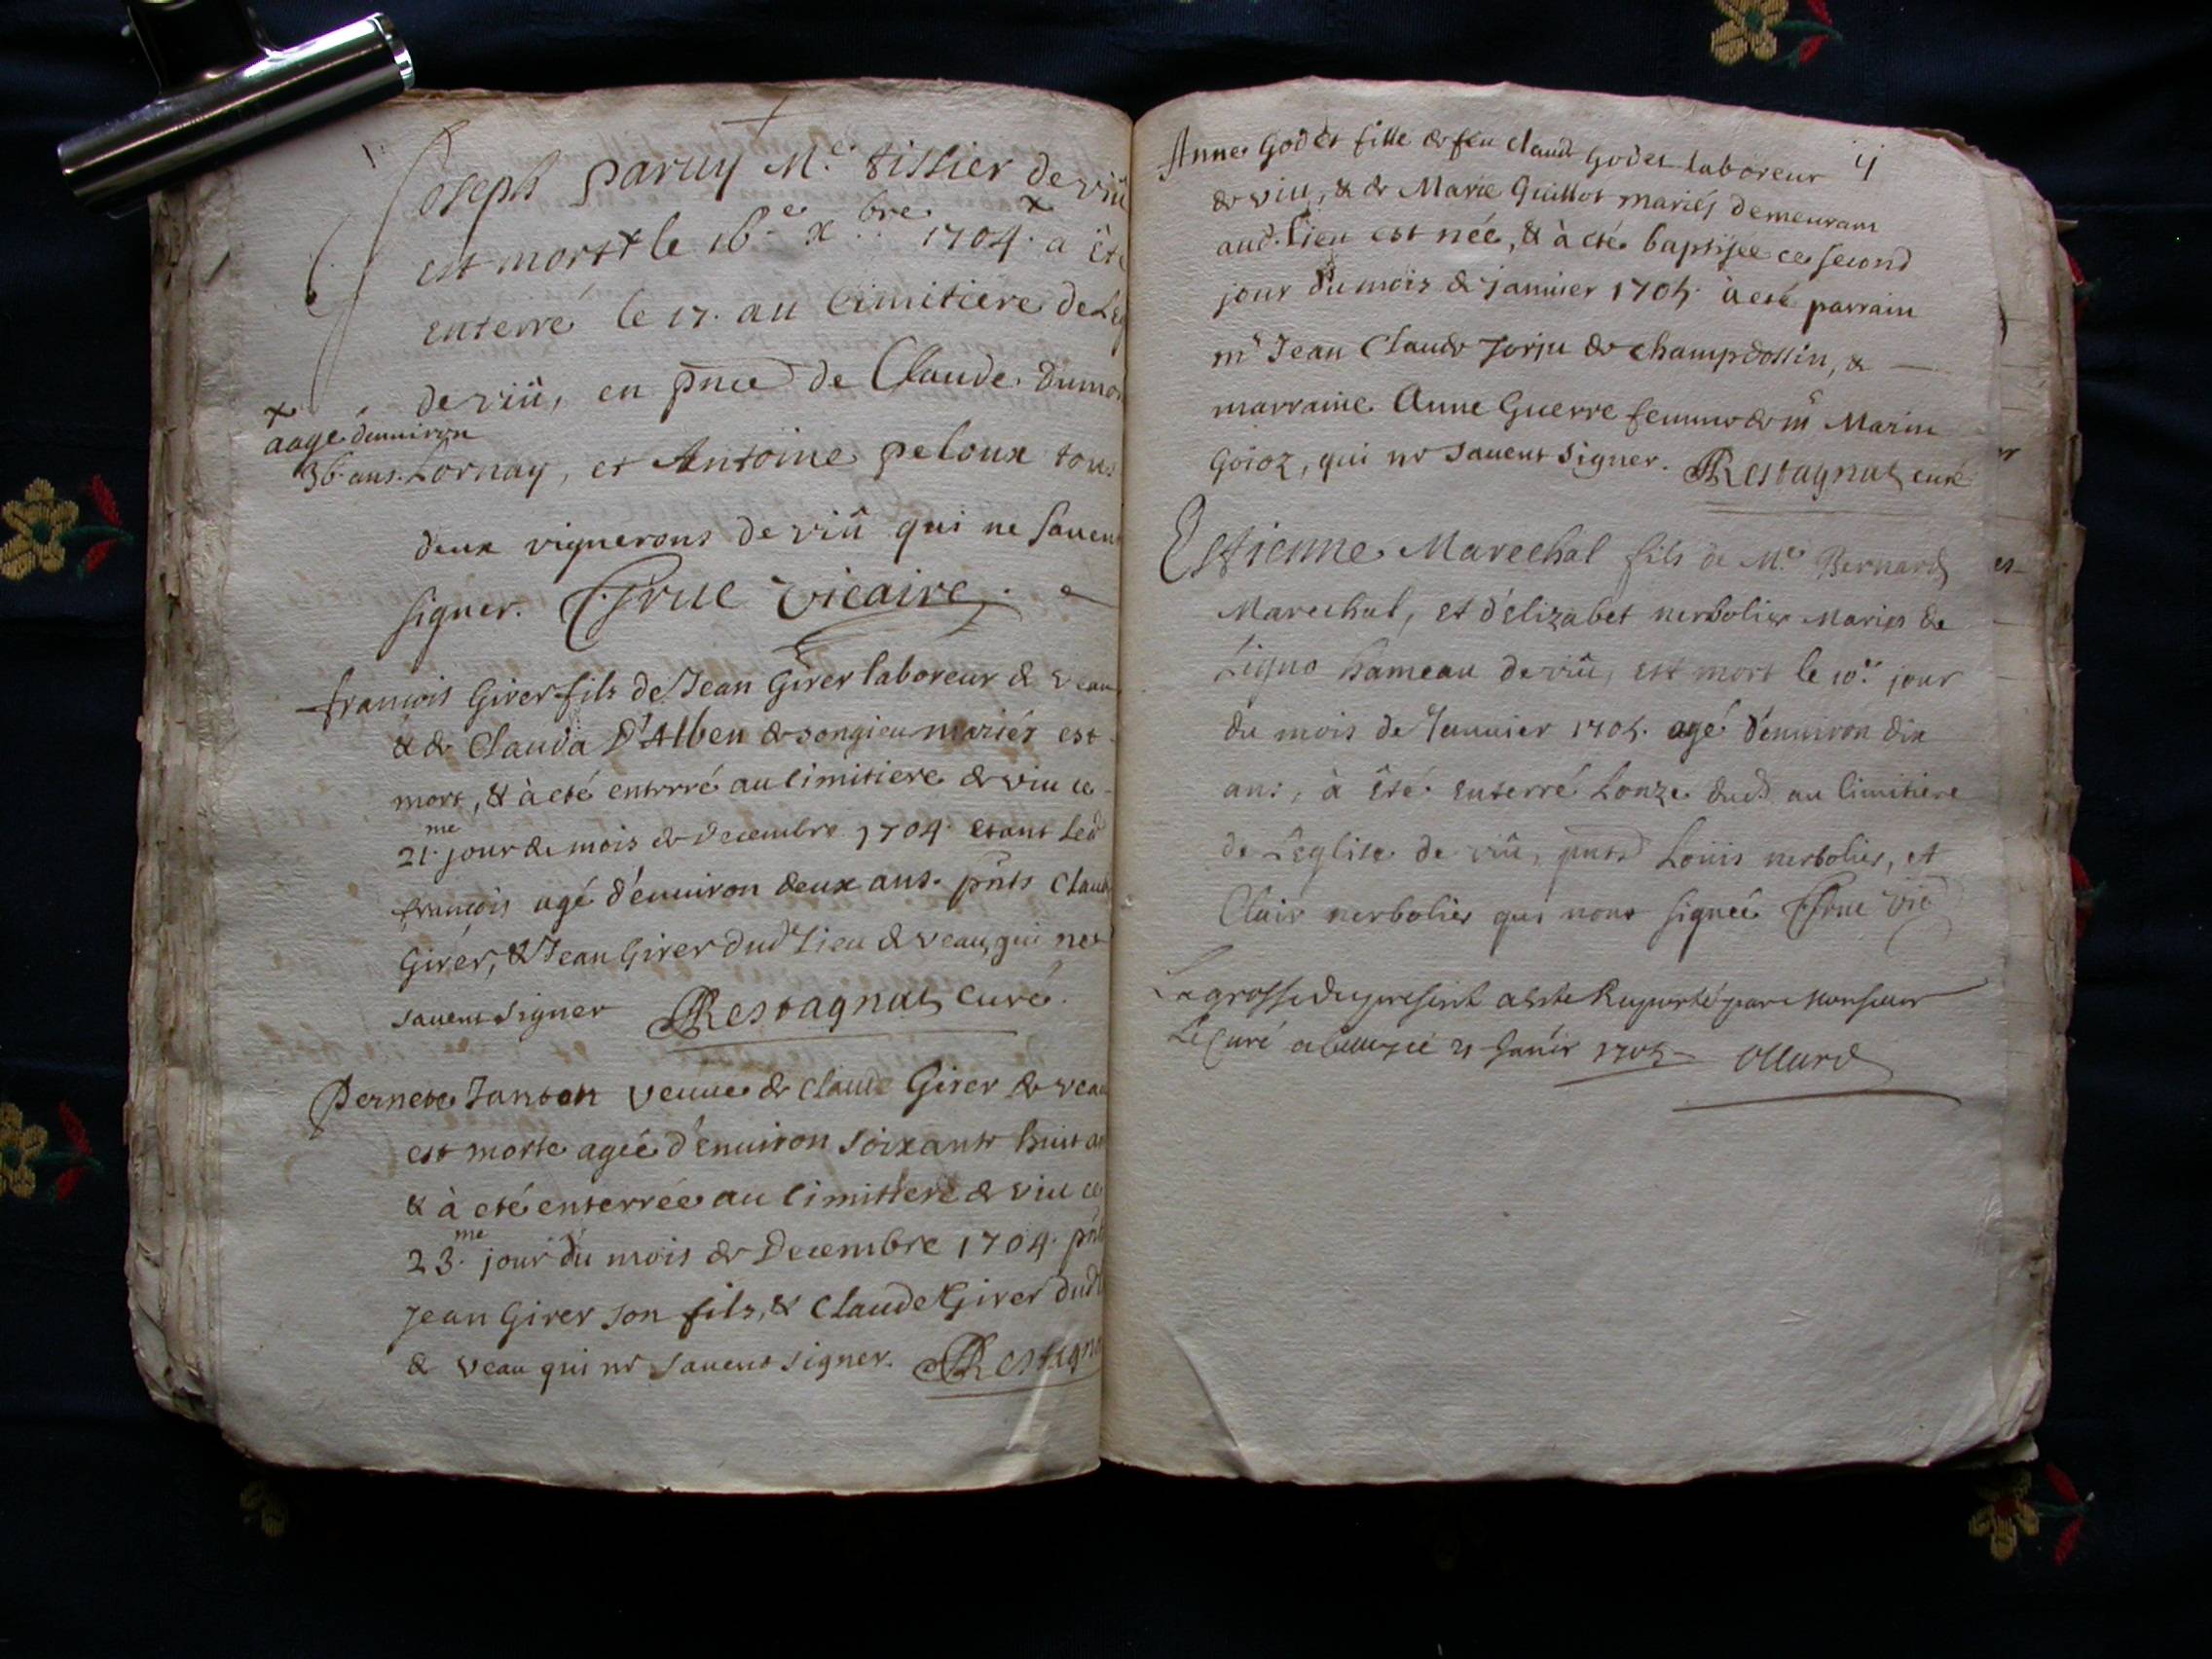 Joseph Paruy Me. tissier de viû
est mort x le 16e. xbre. 1704. a x été
enterré le 17. au Cimitiere de L'eg
de viû, en pnce de Claude Dumo
x
aagé d'enuiron
36. ans.
Lornay, et Antoine peloux tous
deux vignerons de viû qui ne sauent
signer. Vicaire.
francois Girer fils de Jean Girer laboreur de veau
& de Clauda D'Alben de songieu mariés est
mort, & à eté enterré au Cimitiere de viu ce
21.me jour de mois de Decembre 1704. etant Led
francois agé d'enuiron deux ans. pnts Claude
Girer, & Jean Girer dud. Lieu de veau, qui ne
sauent signer Restagnat Curé.
Pernete Janton veuue de Claude Girer de veau
est morte agée d'enuiron soixante huit an
& à eté enterrée au Cimitiere de viu ce
23.me jour du mois de Decembre 1704. pnt
Jean Girer son fils, & Claude Girer dud
de veau qui ne sauent signer. Restagna
Anne Godet fille de feu Claude Godet laboreur
de viu, & de Marie Guillot mariés demeurans
aud. Lieu est née, & à eté baptisée ce second
jour du mois de januier 1705. à esté parrain
mr Jean Claude Jorju de champdossin, &
marraine Anne Guerre femme de mr Marin
Goioz, qui ne sauent signer. Restagnat curé
Estienne Marechal fils de Me. Bernard
Marechal, et d'élizabet nerbolier Mariés de
Ligno hameau de viû, est mort le 10e. jour
du mois de Januier 1705. agé d'enuiron dix
ans, à été enterré Lonze dud. au Cimitiere
de L'eglise de viû, pnts Loüis nerbolier, et
Clair nerbolier qui nont signéé vic
La grosse du present a este Raporté par Monsieur
Le Curé 21 1705 Ollard